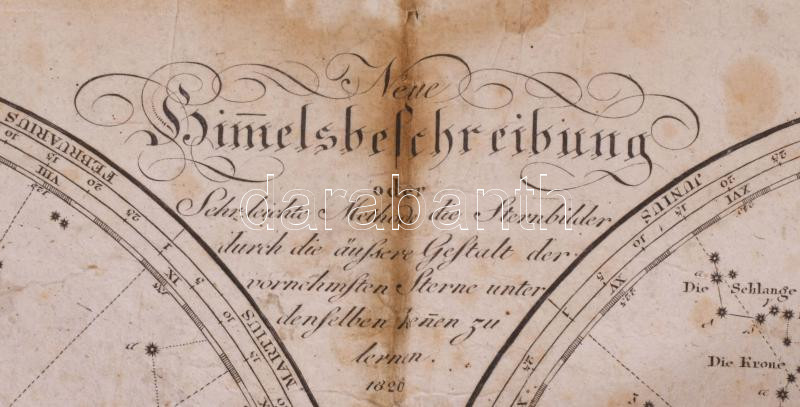 Neue
Him̅elsbeſchreibung
oder
Sehr leichte Methode die Sternbilder
durch die äuſsere Geſtalt der
vornehmſten Sterne unter
denſelben ken̅en zu
lernen.
1820
darabanth
FEBRUARIUS
MARTIUS
JUNIUS
VIII
IX
XVI
XV
Die Schlange
Die Krone